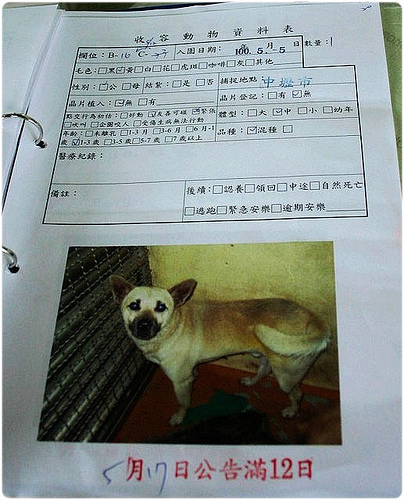 收容動物資料表
欄位：B-16 C-27 入園日期：100.5.-5 月 日 數量：1
毛色：□黑☑黃□白□花□虎斑□咖啡□灰□其他
性別：☑公□母 結紮：□是□否 捕捉地點 中壢市
晶片植入：☑無□有 晶片登記：□有☑無
肢交行為初估：□好動☑友善可親☑緊張 體型：□大☑中□小□幼年
□吠叫□企圖咬人□受傷生病無法行動
年齡：□未離乳□1-3月□3-6月□6月-1 品種：☑混種□
歲☑1-3歲□3-5歲□5-7歲□7歲以上
醫療紀錄：
備註：
後續：□認養□領回□中途□自然死亡
□逃跑□緊急安樂□逾期安樂
5月17日公告滿12日